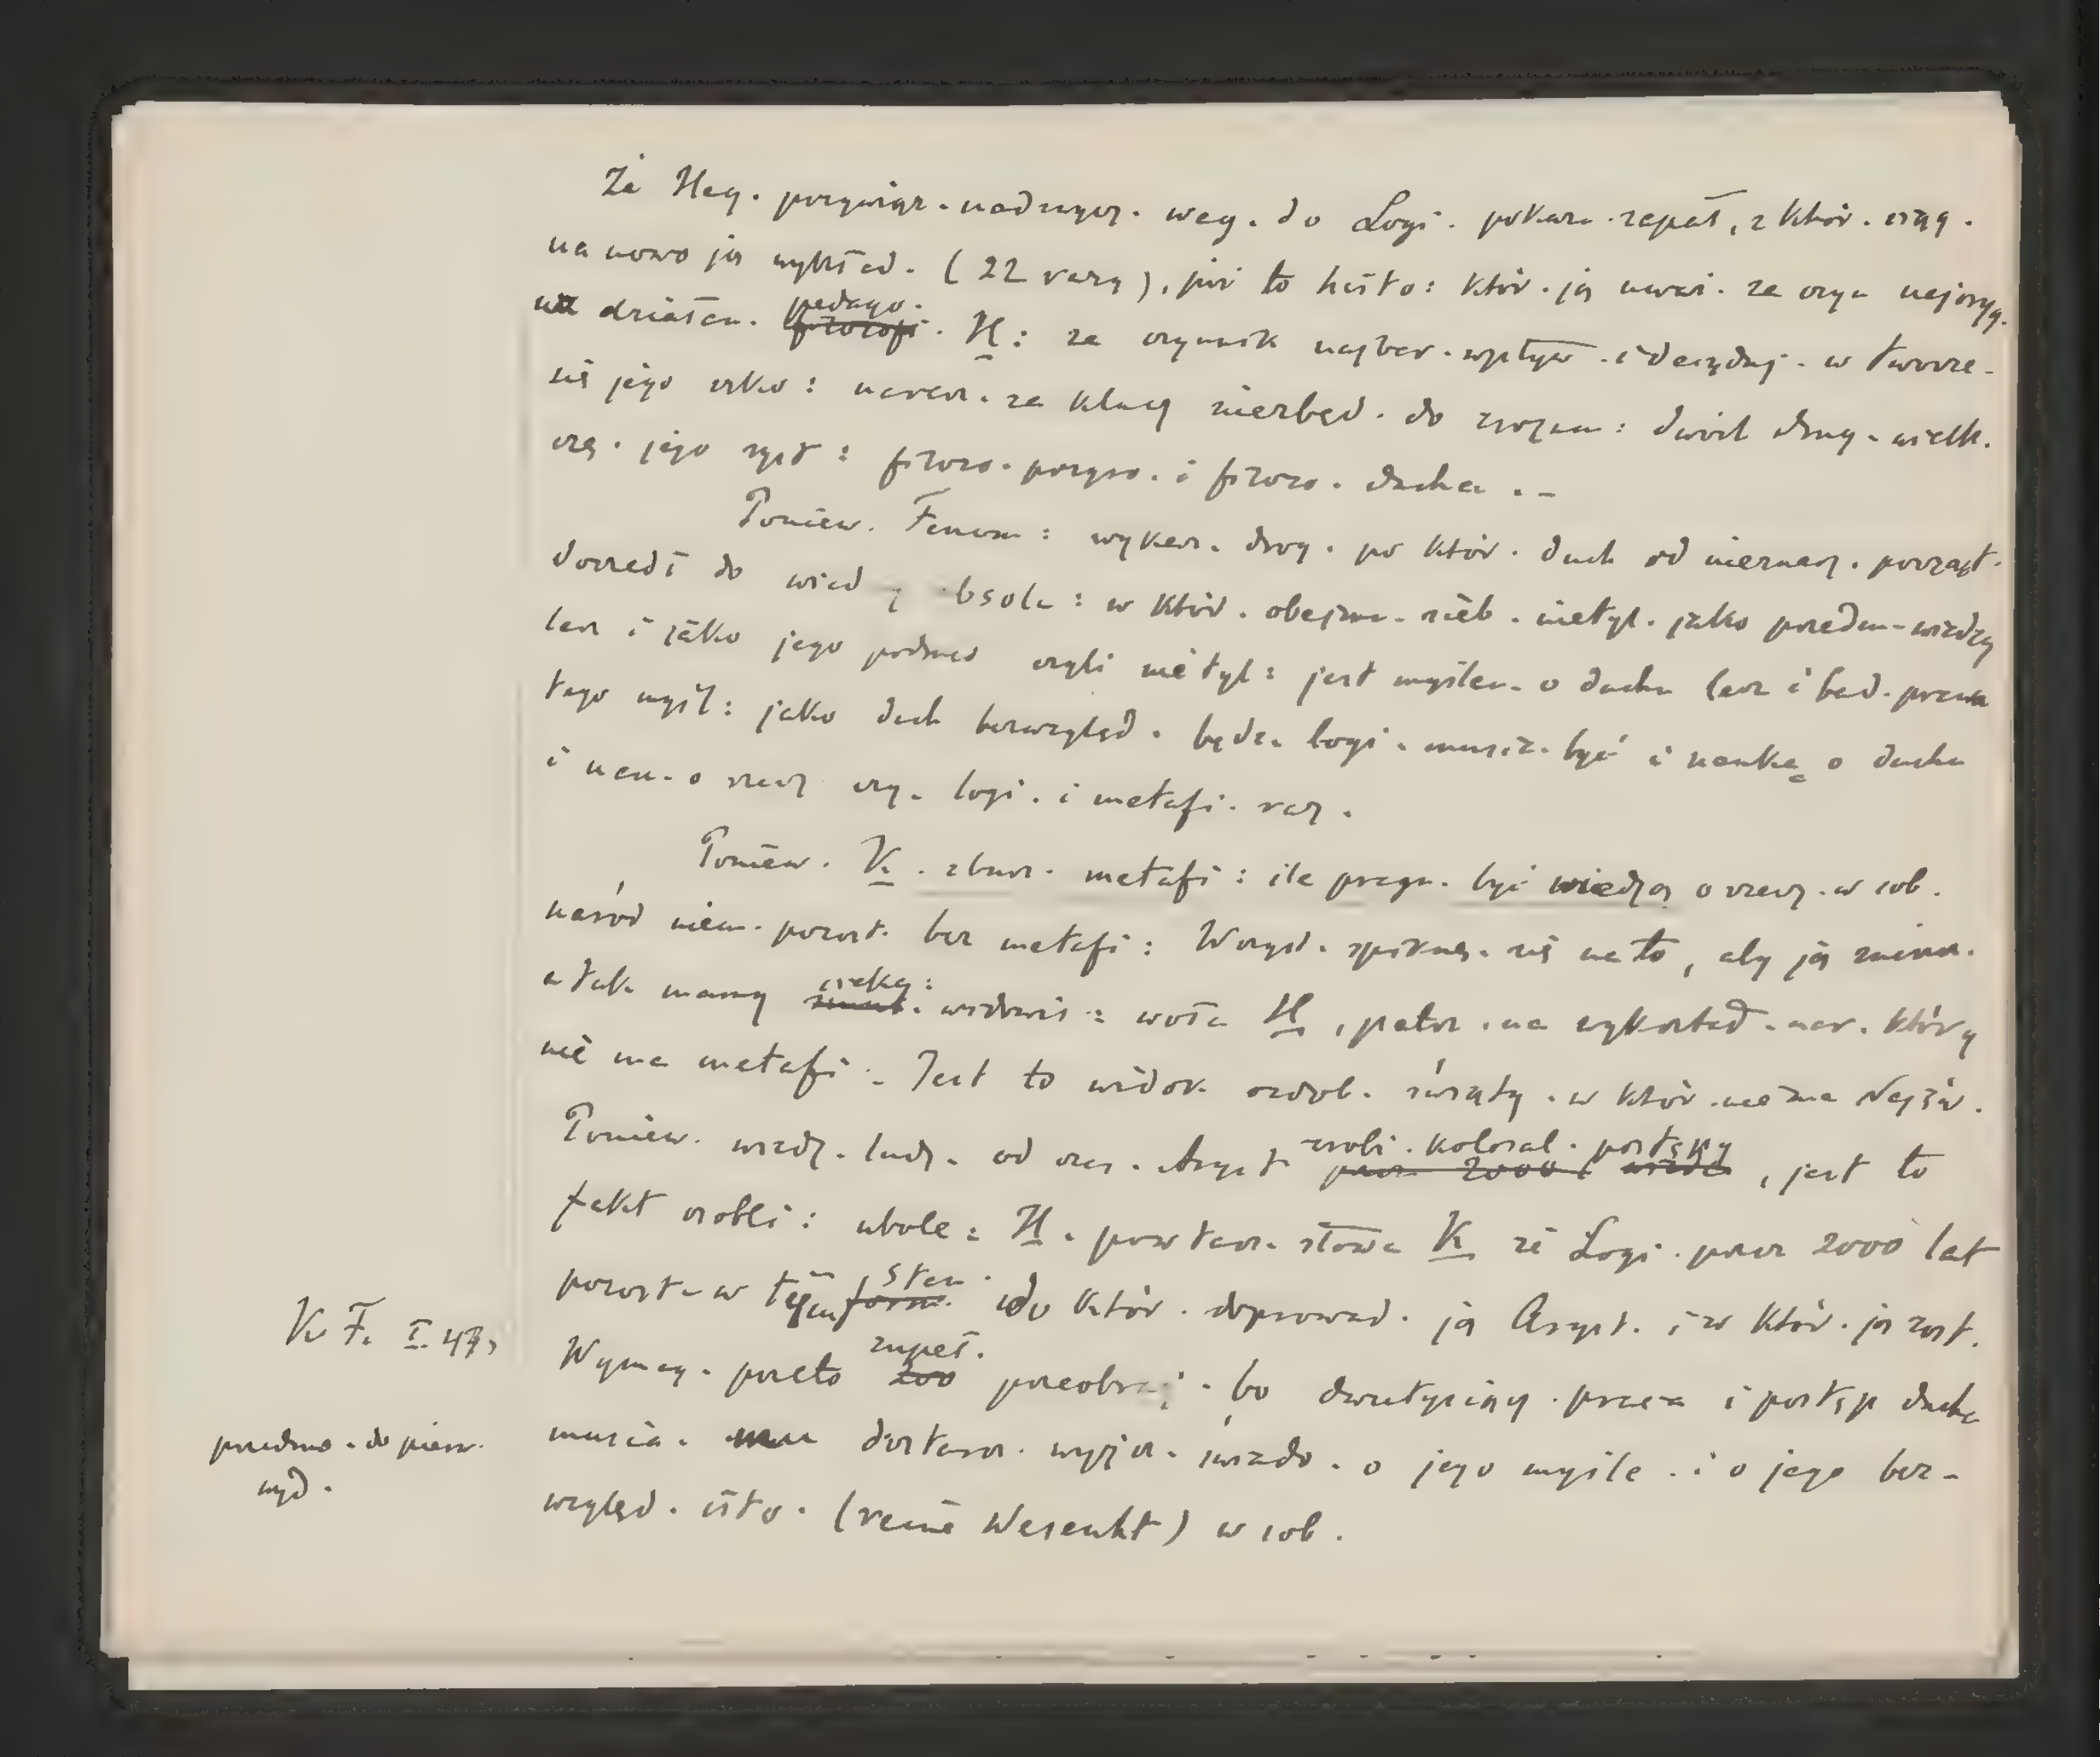 Że Heg. przywiąz. nadzwycz. wag. do Logi. pokazu. zapał, z któr. ciąg.
na nowo ją wykład. (22 razy), już to histo: któr. ją uważ. za czyn najoryg.
na działan. pedago. H: za czynnik najbar. wpływ. i decyduj. w tworze-
niu jego szko: uważ. za klucz niezbęd. do zrozu: dwóch drug. wielk.
czę. jego syst: filozo. przyro. i filozo. ducha.-
Poniew. Fenom: wykaz. drog. po któr. duch od nieznacz. początk.
doszedł do wiedzy absolu: w któr. obejmu. sieb. nietyl. jako przedm. wiedzy
lecz i jako jego podmio czyli nie tyl: jest myślen. o duchu lecz i bad. prawa
tego myśl: jako duch bezwzględ. będz. logi. musi. być i nauką o duchu
i nau. o rzecz czy. logi. i metafi. raz.
Poniew. K. zburz. metafi: ile pragn. być wiedzą o rzecz. w sob.
naród niem. pozost. bez metafi: Wszyst. spiknę. się na to, aby ją zniwe.
a tak mamy cieka: widowis: woła H, patrz. na wykształ. nar. który
nie ma metafi:. Jest to widok ozdob. świąty. w któr. nie ma Najśw.
Poniew. wiedz. ludz. od czas. Aryst zrobi. kolosal. postępy, jest to
fakt osobli: ubole: H. powtarz. słowa K. że Logi. przez 2000 lat
pozost. w tym stan. do któr. doprowad. ją Aryst. i w któr. ją zost.
Wymag. przeto zupeł. przeobraż. bo dwutysiącz. praca i postęp ducha
musia. dostarcz. wyższ. świado. o jego myśle. i o jego bez-
względ. isto. (reine Wesenht) w sob.
K F. I. 47,
przedmo. do pierw.
wyd.